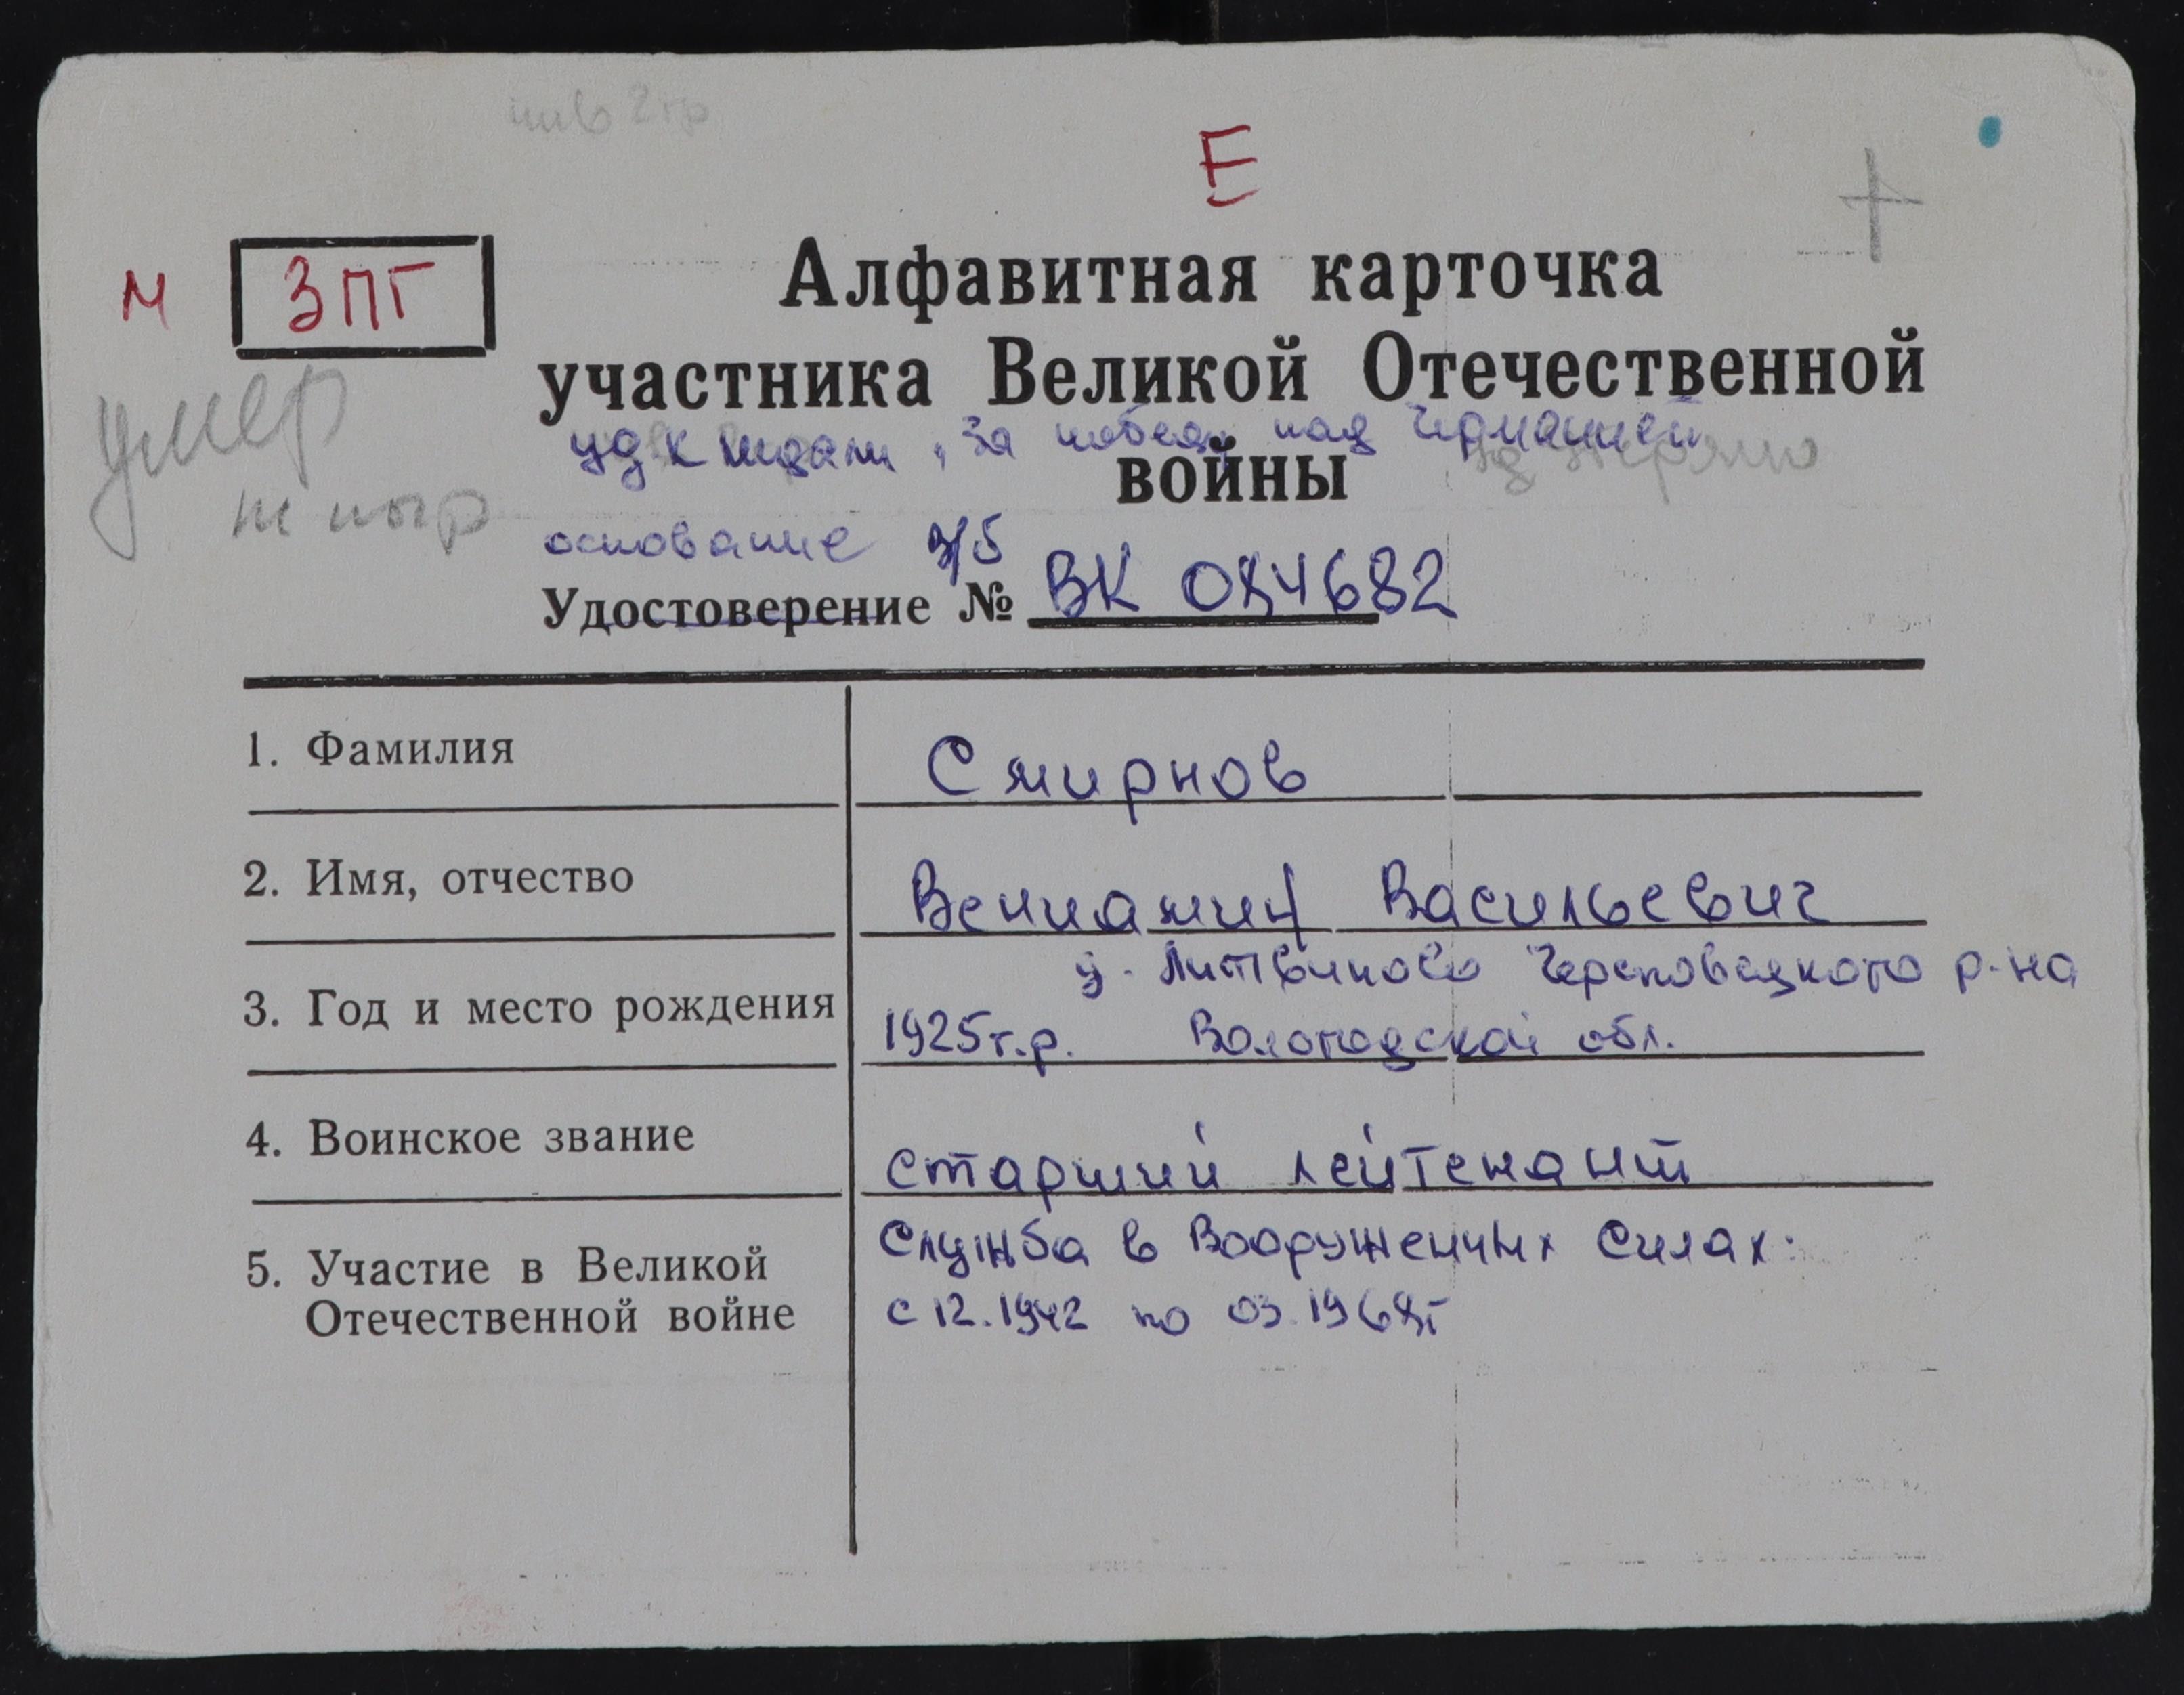 инв 2 гр
Е
М ЗПГ
Алфавитная карточка
участника Великой Отечественной
умер
уд к медали „За победу над Германией
войны
основание в/б
Удостоверение № ВК 084682
1. Фамилия Смирнов
2. Имя, отчество Вениамин Васильевич
д. Литвиново Череповецкого р-на
3. Год и место рождения 1925 г.р. Вологодской обл.
4. Воинское звание старший лейтенант
5. Участие в Великой Отечественной войне
Служба в Вооруженных Силах:
с 12.1942 по 03.1968г